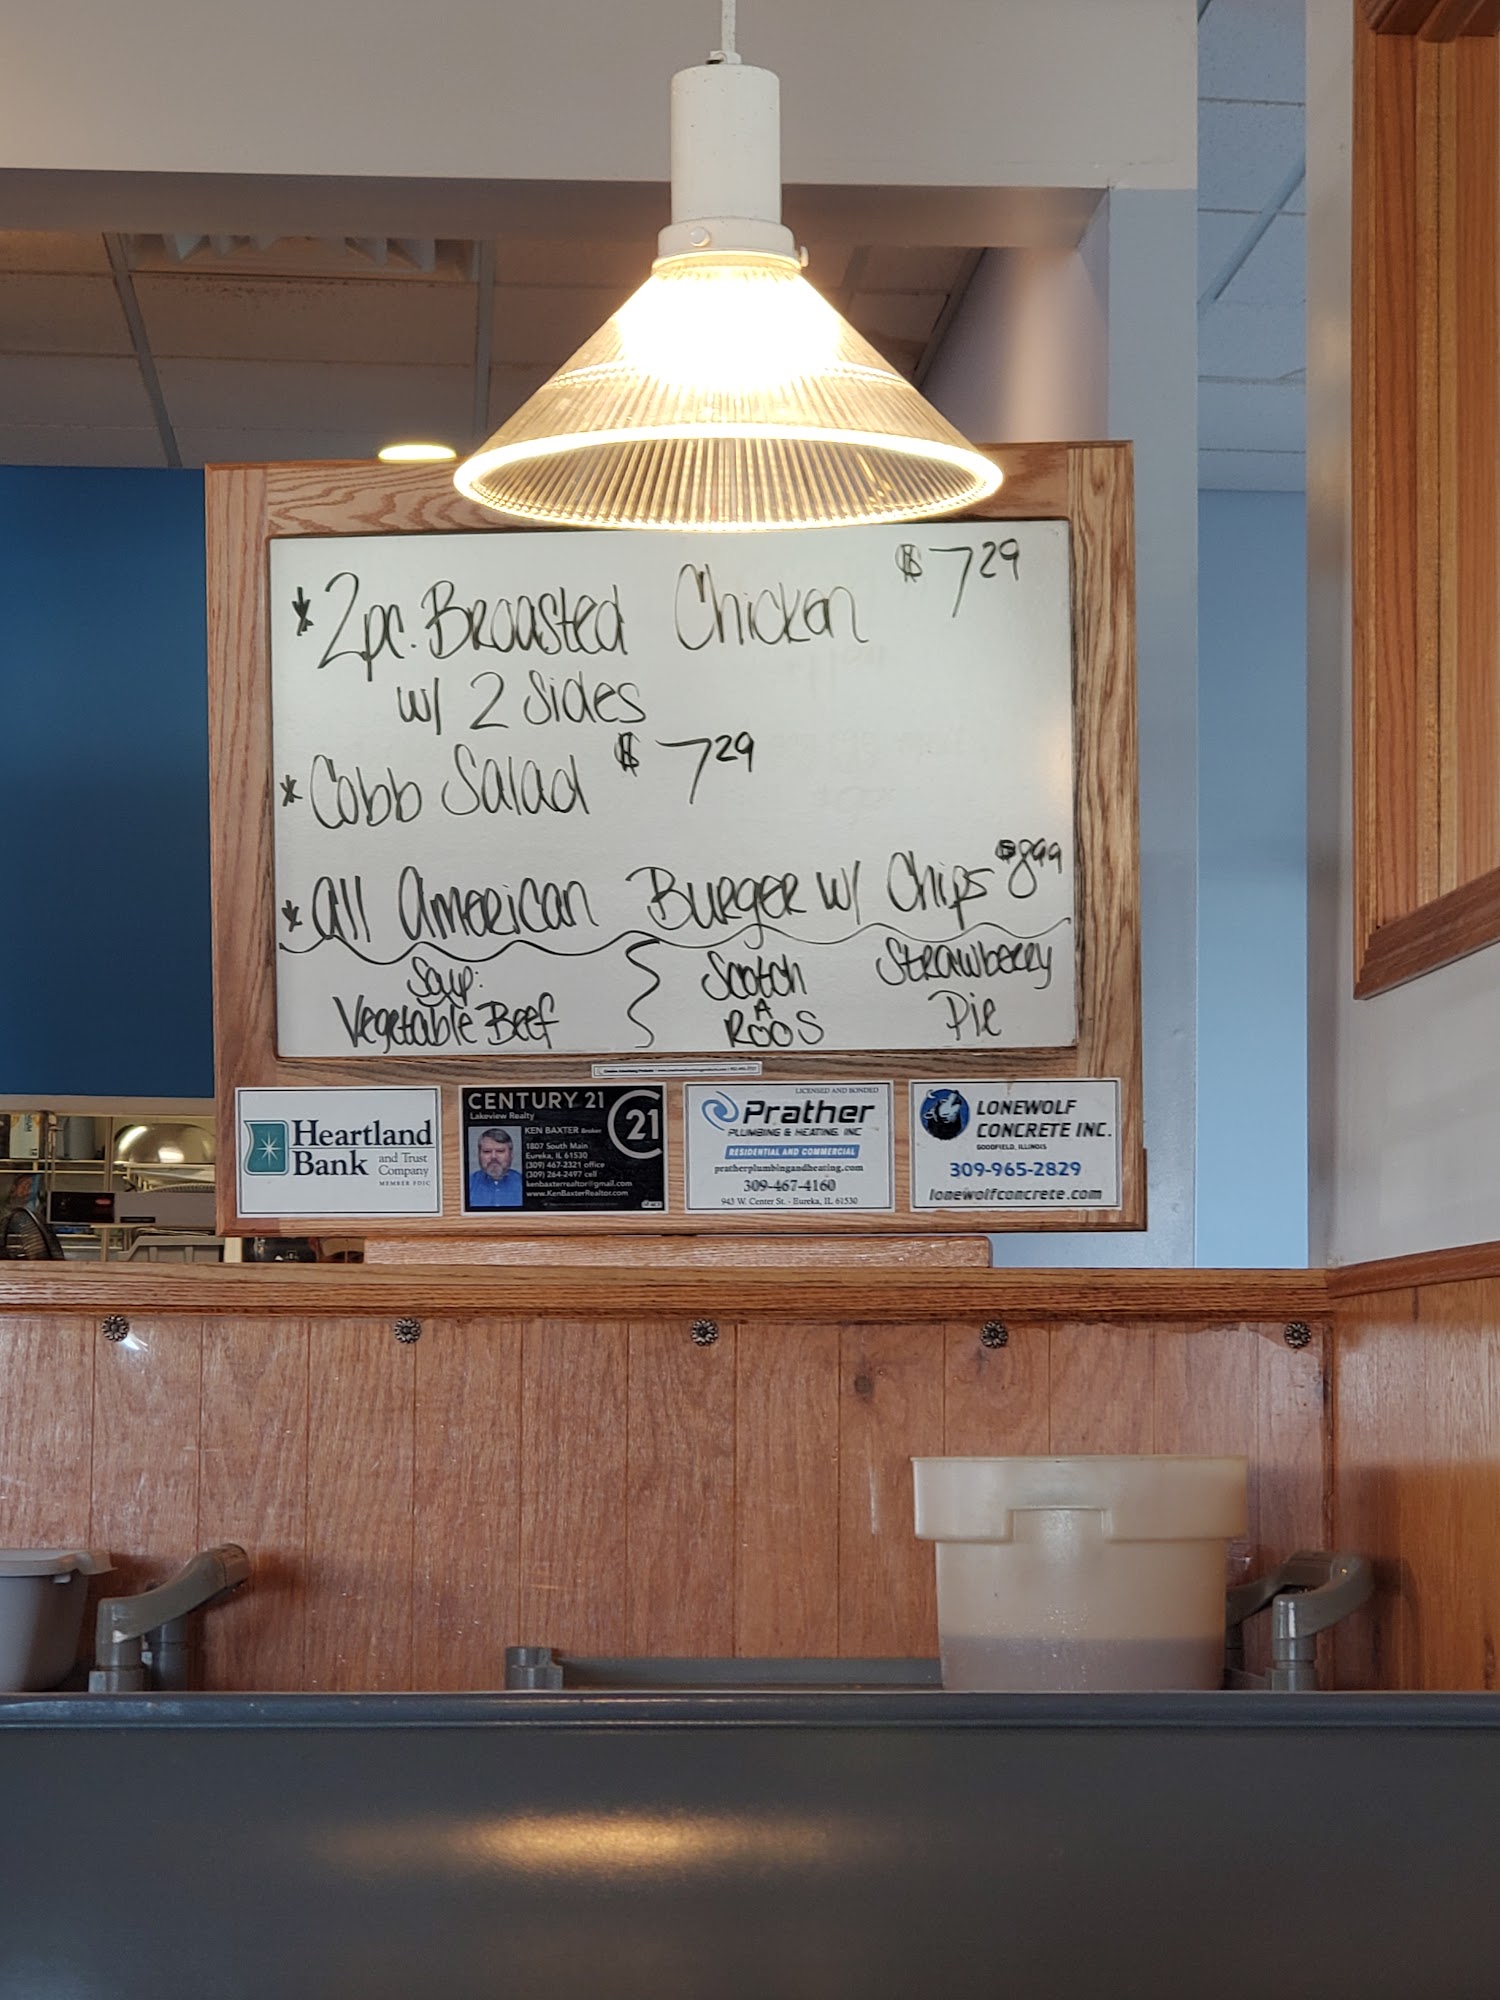 * 2pc. Broasted Chicken $7 29
w/ 2 Sides
* Cobb Salad $7 29
* All American Burger w/ Chips $8 99
Soup:
Vegetable Beef
Scotch
A
ROOS
Strawberry
Pie
Heartland
Bank and Trust
Company
MEMBER FDIC
CENTURY 21
Lakeview Realty
C21
KEN BAXTER Broker
1807 South Main
Eureka, IL 61530
(309) 467-2321 office
(309) 264-2497 cell
kenbaxterrealtor@gmail.com
www.KenBaxterRealtor.com
LICENSED AND BONDED
Prather
PLUMBING & HEATING, INC
RESIDENTIAL AND COMMERCIAL
pratherplumbingandheating.com
309-467-4160
943 W. Center St. - Eureka, IL 61530
LONEWOLF
CONCRETE INC.
GOODFIELD, ILLINOIS
309-965-2829
lonewolfconcrete.com